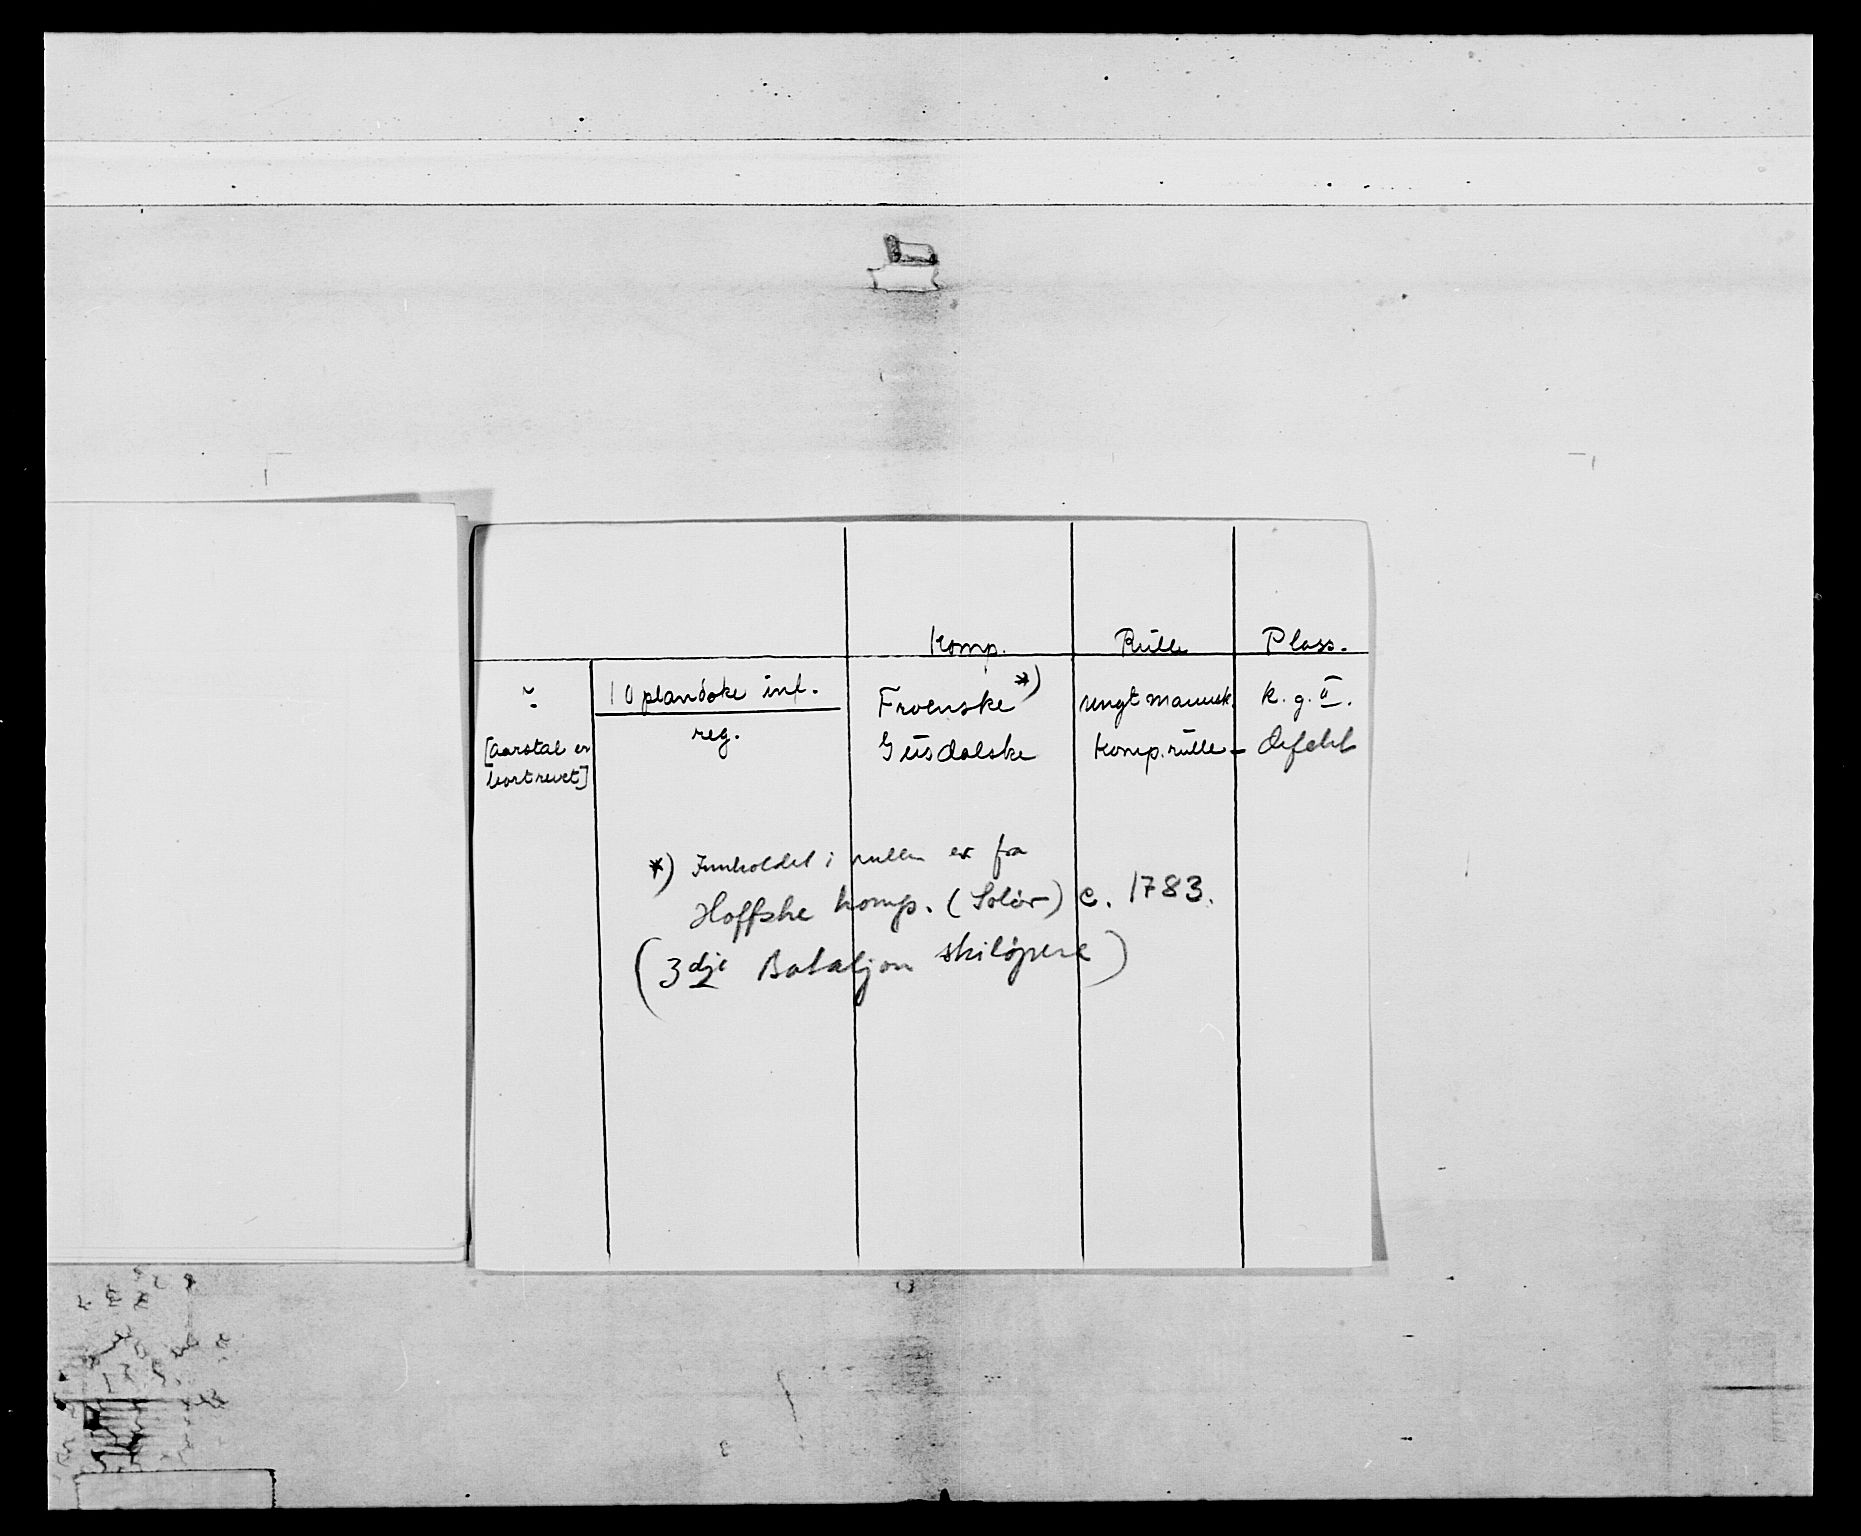 Komp. Rulle Plass.
1 Oplandske inf. Froenske *) k. g. II.
reg. Gusdalske Komp.rulle - defekt
[aarstal er
bortrevet]
*) Innholdet i rullen er fra
Hoffske komp. (Solør) c. 1783.
(3dje Bataljon skiløpere)